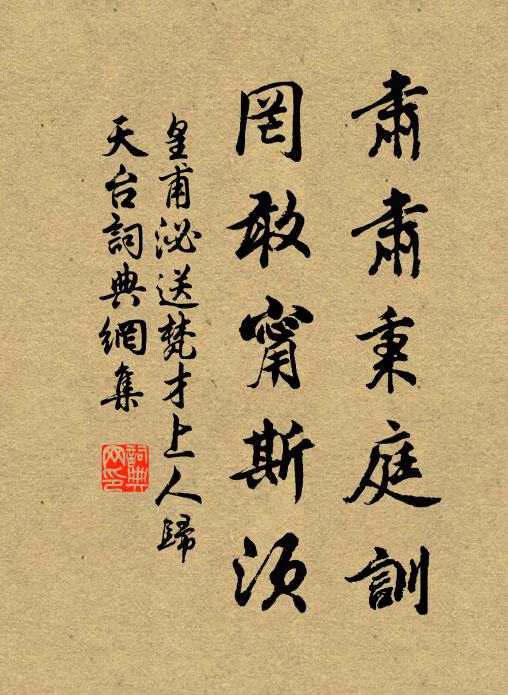 肅肅秉庭訓
罔敢甯斯須
皇甫泌送梵才上人歸
天台詞典網集
詞典网印